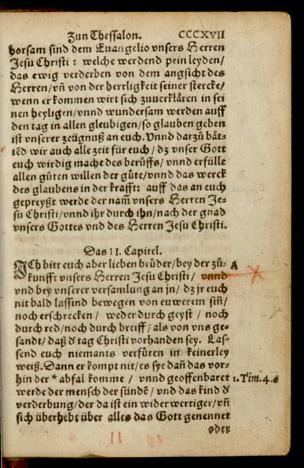 Zun Thessalon. CCCXVII
horsam sind dem Euangelio vnsers Herren
Jesu Christi : welche werdend pein leyden/
das ewig verderben von dem angsicht des
Herren/vñ von der herrligkeit seiner stercke/
wenn er kommen wirt sich zuuerklären in sei-
nen heyligen/vnnd wundersam werden auff
den tag in allen gleubigen/so glauben geben
ist vnserer zeügnuß an euch. Vnnd darzů bät-
tēd wir auch alle zeit für euch/ dz vnser Gott
euch wirdig mache des berüffs/ vnnd erfülle
allen gůten willen der güte/vnnd das werck
des glaubens in der krafft: auff das an euch
gepreyßt werde der nam̃ vnsers Herren Je-
su Christi/vnnd ihr durch ihn/nach der gnad
vnsers Gottes vnd des Herren Jesu Christi.
Das II. Capitel.
ICh bitt euch aber lieben brüder/bey der zů- A
kunfft vnsers Herren Jesu Christi/ vnnd
vnd bey vnserer versamlung an jn/ dz jr euch
nit bald lassind bewegen von euwerem siñ/
noch erschrecken/ weder durch geyst / noch
durch red/noch durch brieff/ als von vns ge-
sandt/ daß d' tag Christi vorhanden sey. Las-
send euch niemants verfüren in keinerley
weiß. Dann er kompt nit/es sye dañ das vor-
hin der * abfal komme / vnnd geoffenbaret 1. Tim. 4. a
werde der mensch der sünde/ vnd das kind d'
verderbung/der da ist ein widerwertiger/vñ
sich überhebt über alles das Gott genennet
oder